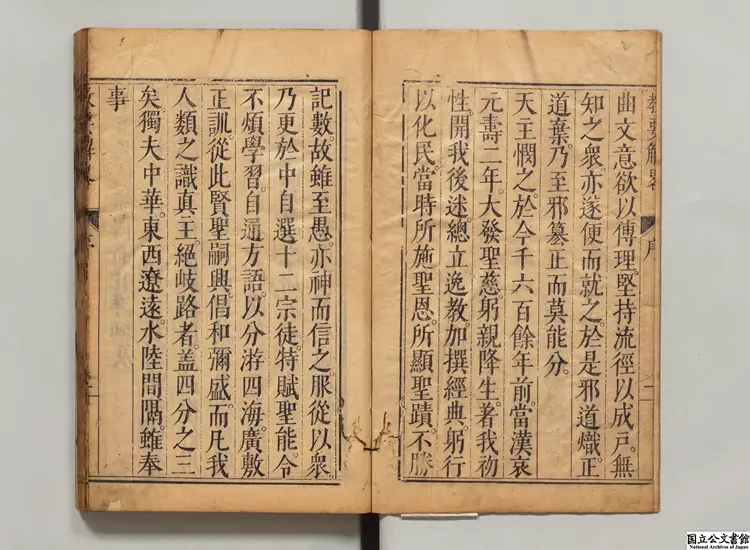 教要解畧
序
曲文意欲以傳理堅持流徑以成戸。無
知之衆。亦遂便而就之。於是邪道熾正
道棄。乃至邪簒正而莫能分。
天主憫之。於今千六百餘年前。當漢哀
元壽二年。大發聖慈。躬親降生。著我初
性。開我後迷。總立逸教。加撰經典。躬行
以化民。當時所施聖恩。所顯聖蹟。不勝
記數。故雖至愚。亦神而信之。服從以衆。
乃更於中自選十二宗徒。特賦聖能。令
不煩學習。自通方語。以分游四海。廣敷
正訓。從此賢聖嗣興。倡和彌盛。而凡我
人類之識真主。絕岐路者。蓋四分之三
矣。獨夫中華。東西遼遠。水陸間隔。雖奉
事
序
国立公文書館
National Archives of Japan